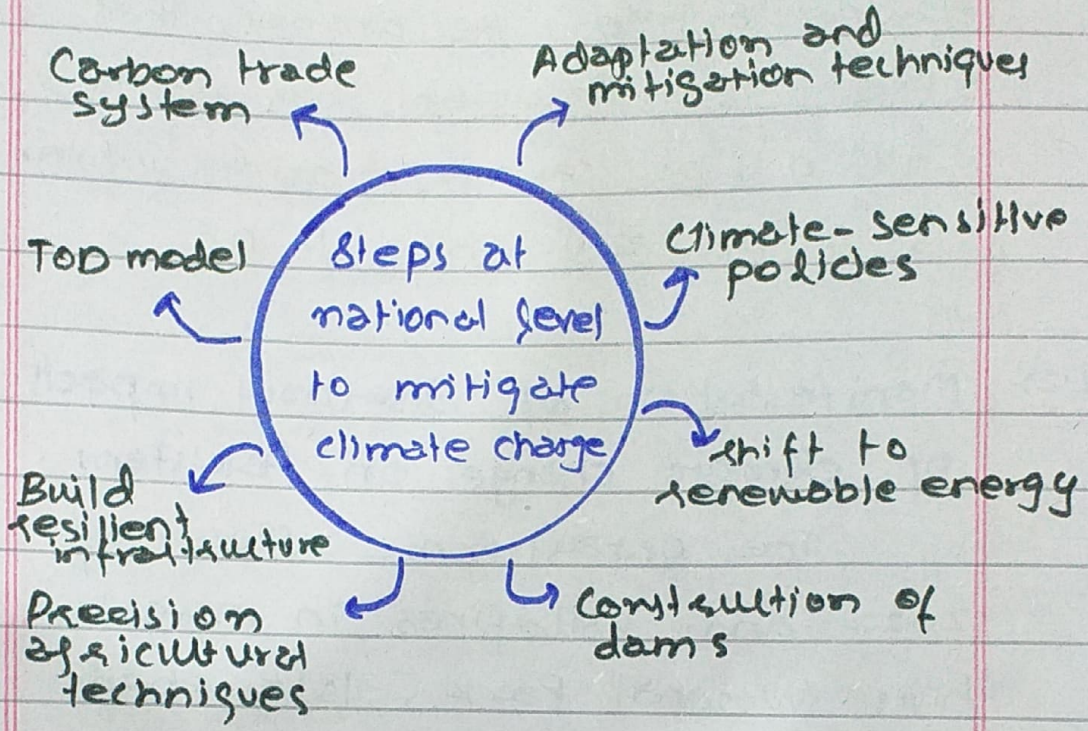 Carbon trade
system
Adaptation and
mitigation techniques
TOD model
Steps at
national level
to mitigate
climate change
Climate-sensitive
policies
Build
resilient
infrastructure
shift to
renewable energy
Precision
agricultural
techniques
Construction of
dams